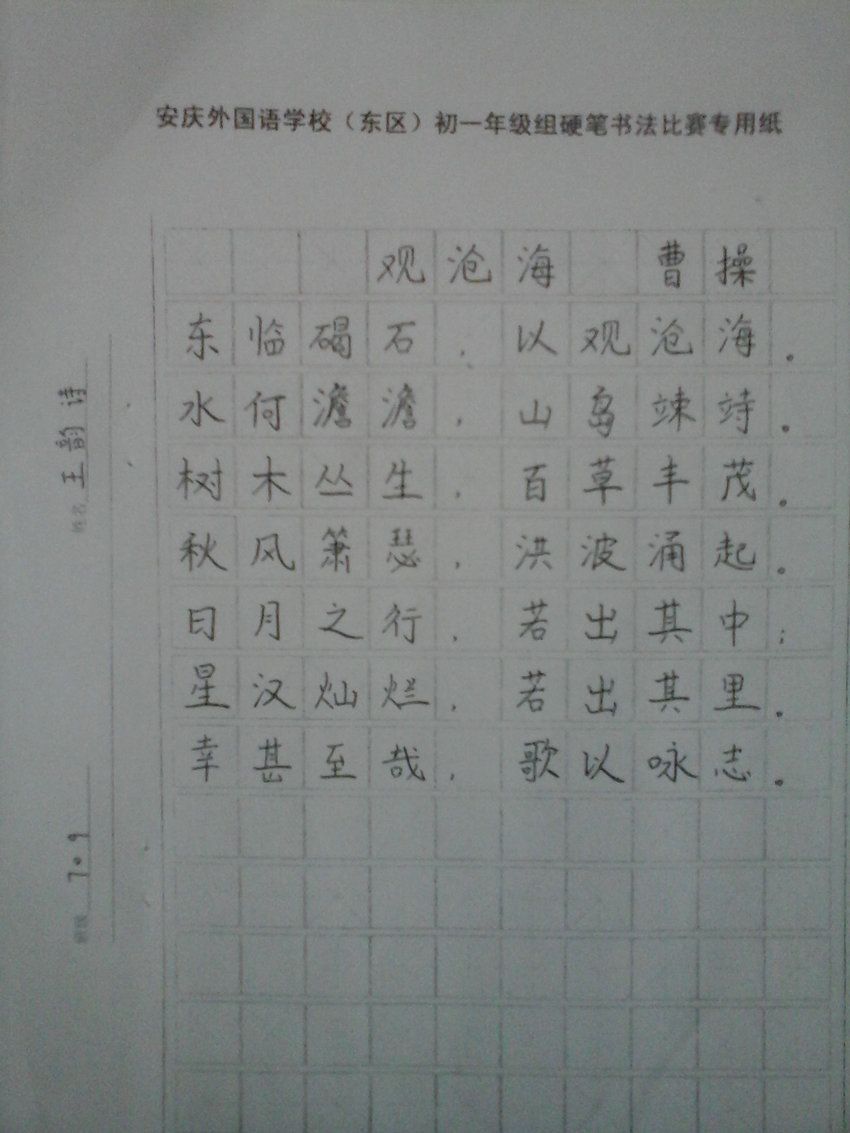 安庆外国语学校（东区）初一年级组硬笔书法比赛专用纸
观沧海 曹操
东临碣石，以观沧海。
水何澹澹，山岛竦峙。
树木丛生，百草丰茂。
秋风萧瑟，洪波涌起。
日月之行，若出其中；
星汉灿烂，若出其里。
幸甚至哉，歌以咏志。
姓名 王韵诗
班级 7.9